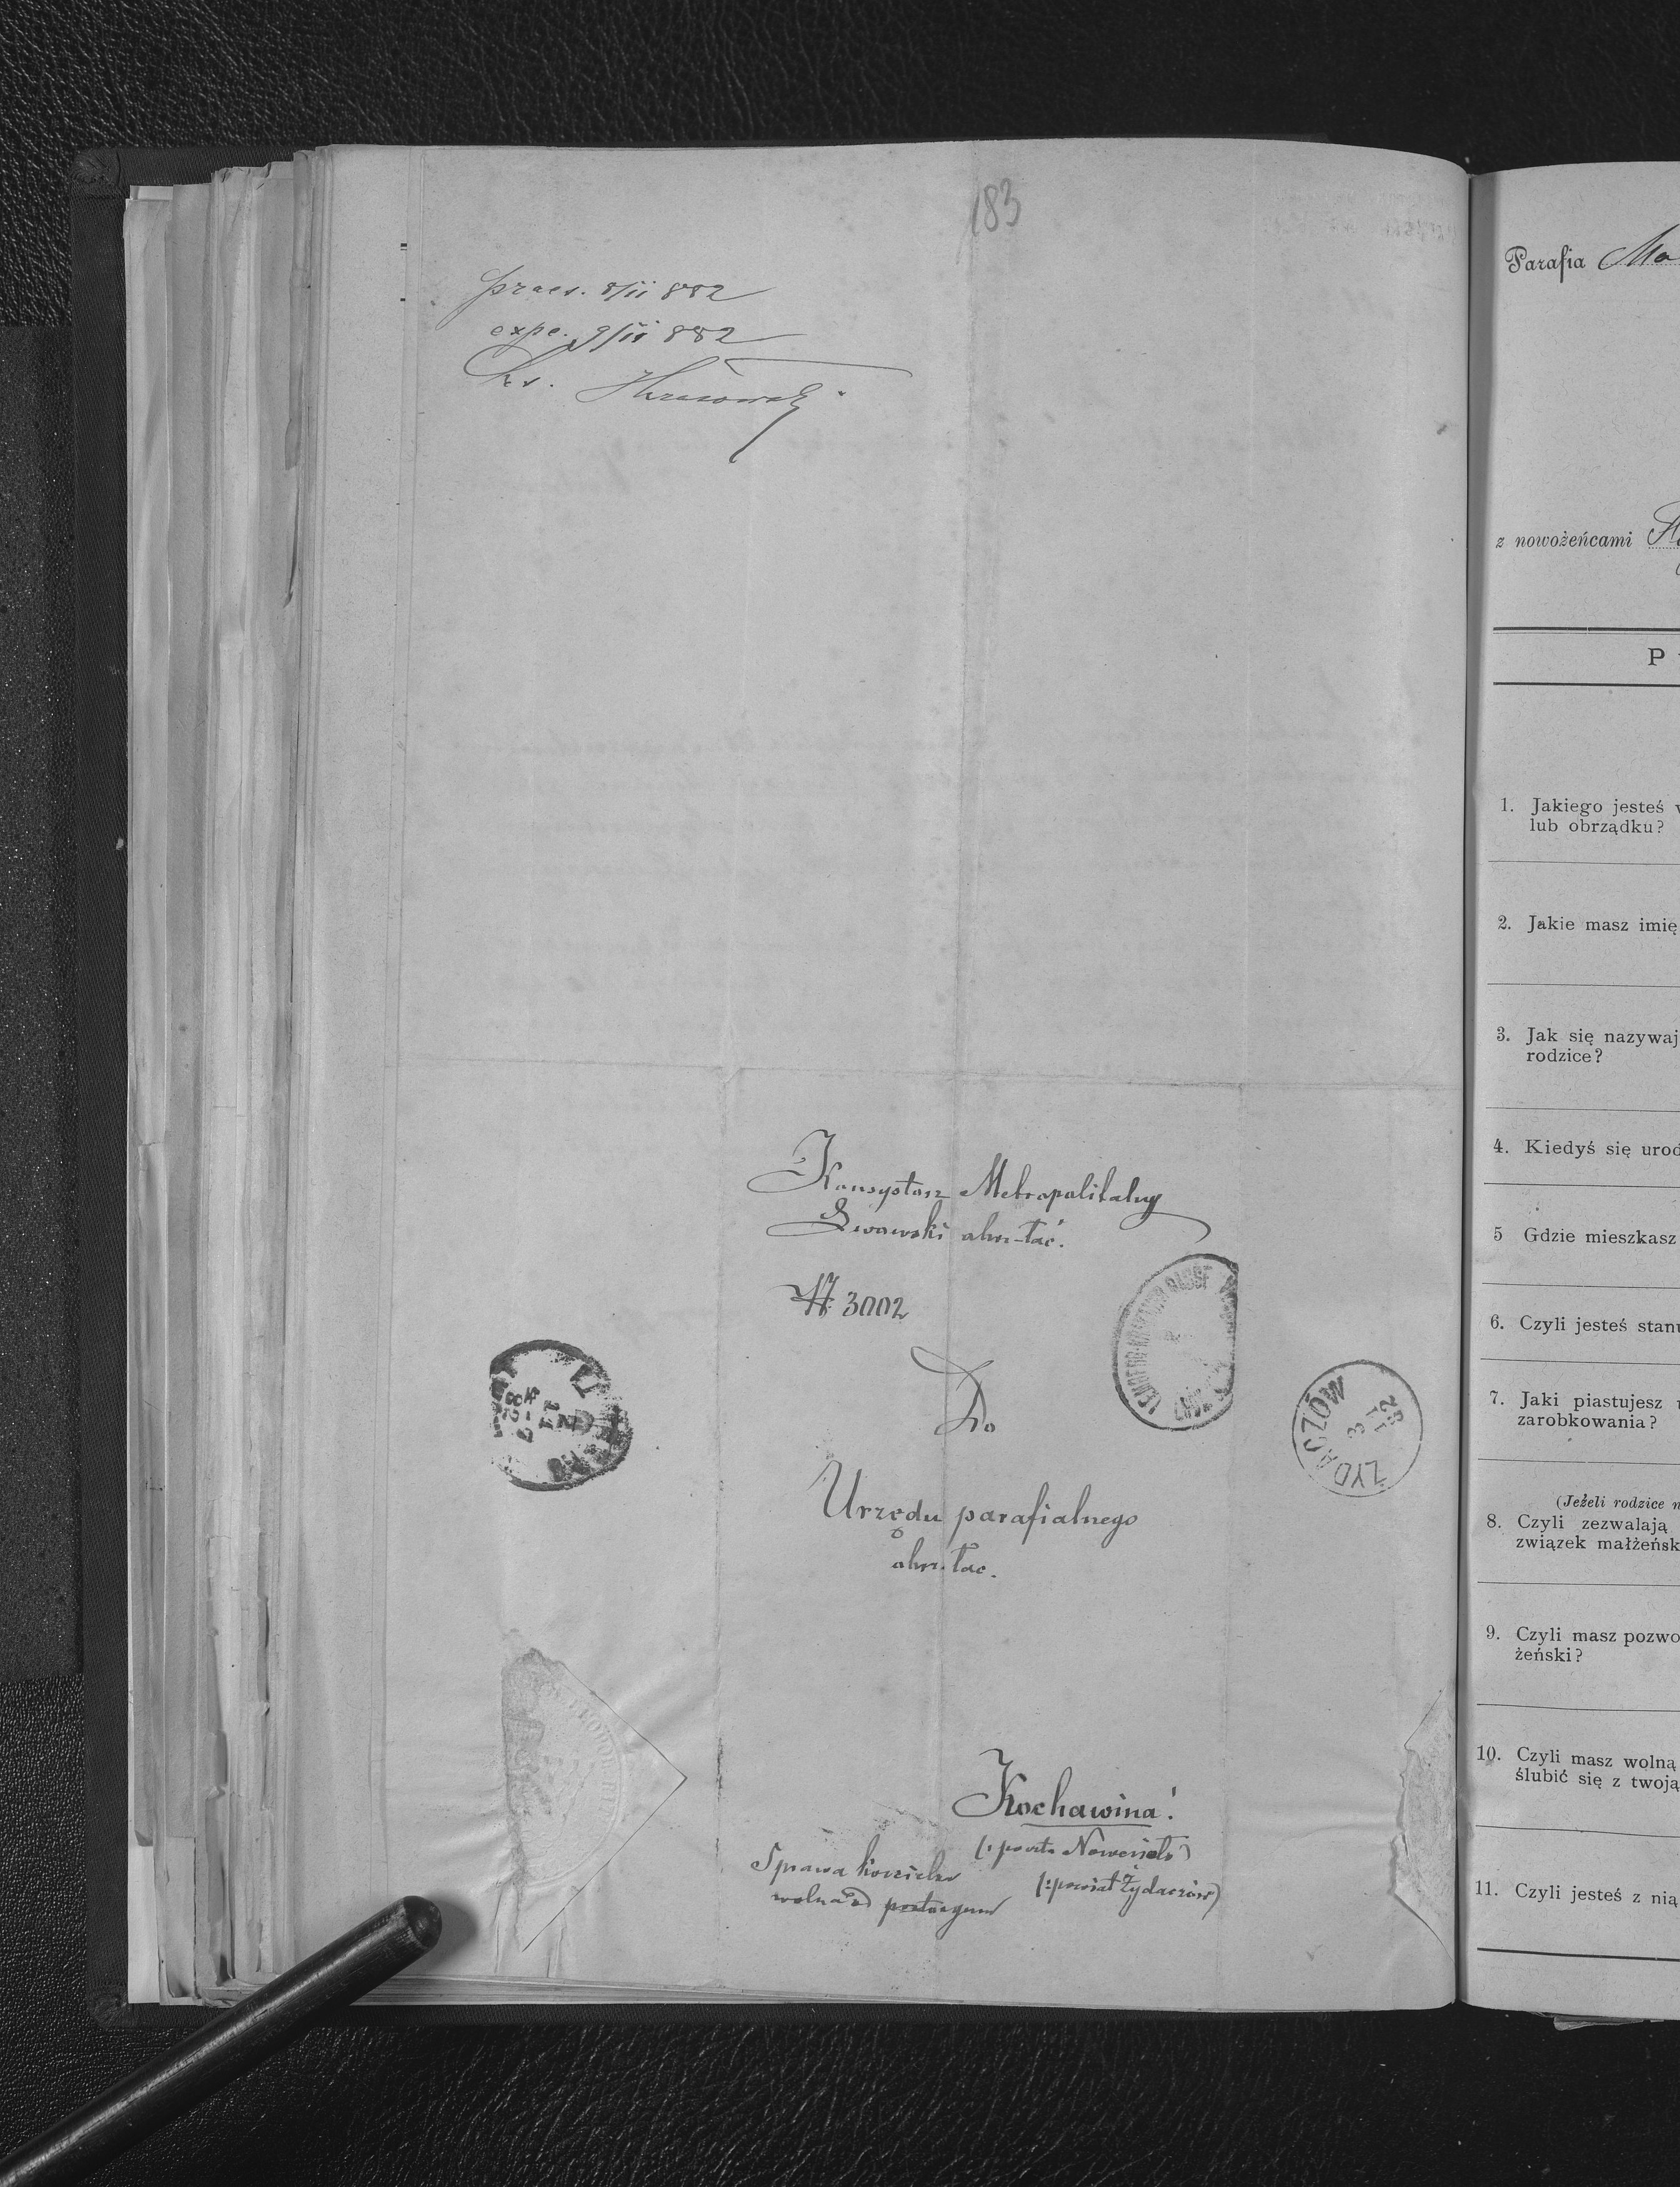 183
praes. 8/II 882
expe. 9/II 882
ks.
Konsystorz Metropolitalny
Lwowski obrz-łać.
N 3002
Do
Urzędu parafialnego
obrz. łac.
ŻYDACZÓW
3 1
82
Kochawina!
(: poczta Nowesioło)
(: powiat Żydaczów)
Sprawa kościelna
wolna od portoryum
Parafia Ma
z nowożeńcami
P
1. Jakiego jesteś
lub obrządku?
2. Jakie masz imię
3. Jak się nazywaj
rodzice?
4. Kiedyś się urod
5 Gdzie mieszkasz
6. Czyli jesteś stanu
7. Jaki piastujesz
zarobkowania?
(Jeżeli rodzice n
8. Czyli zezwalają
związek małżeńsk
9. Czyli masz pozwo
żeński?
10. Czyli masz wolną
ślubić się z twoją
11. Czyli jesteś z nią